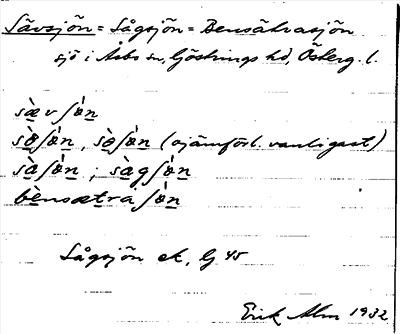 Sävsjön = Sågsjön = Bensätrasjön
sjö i Asbo sn, Göstrings hd, Österg. l.
sæ̀v ʃǿn
sø̀ʃǿn, sò̤ʃǿn (ojämförl. vanligast)
sàʃǿn ; sàgʃǿn
bènsætra ʃǿn
Sågsjön ek, G 45
Erik Alm 1932